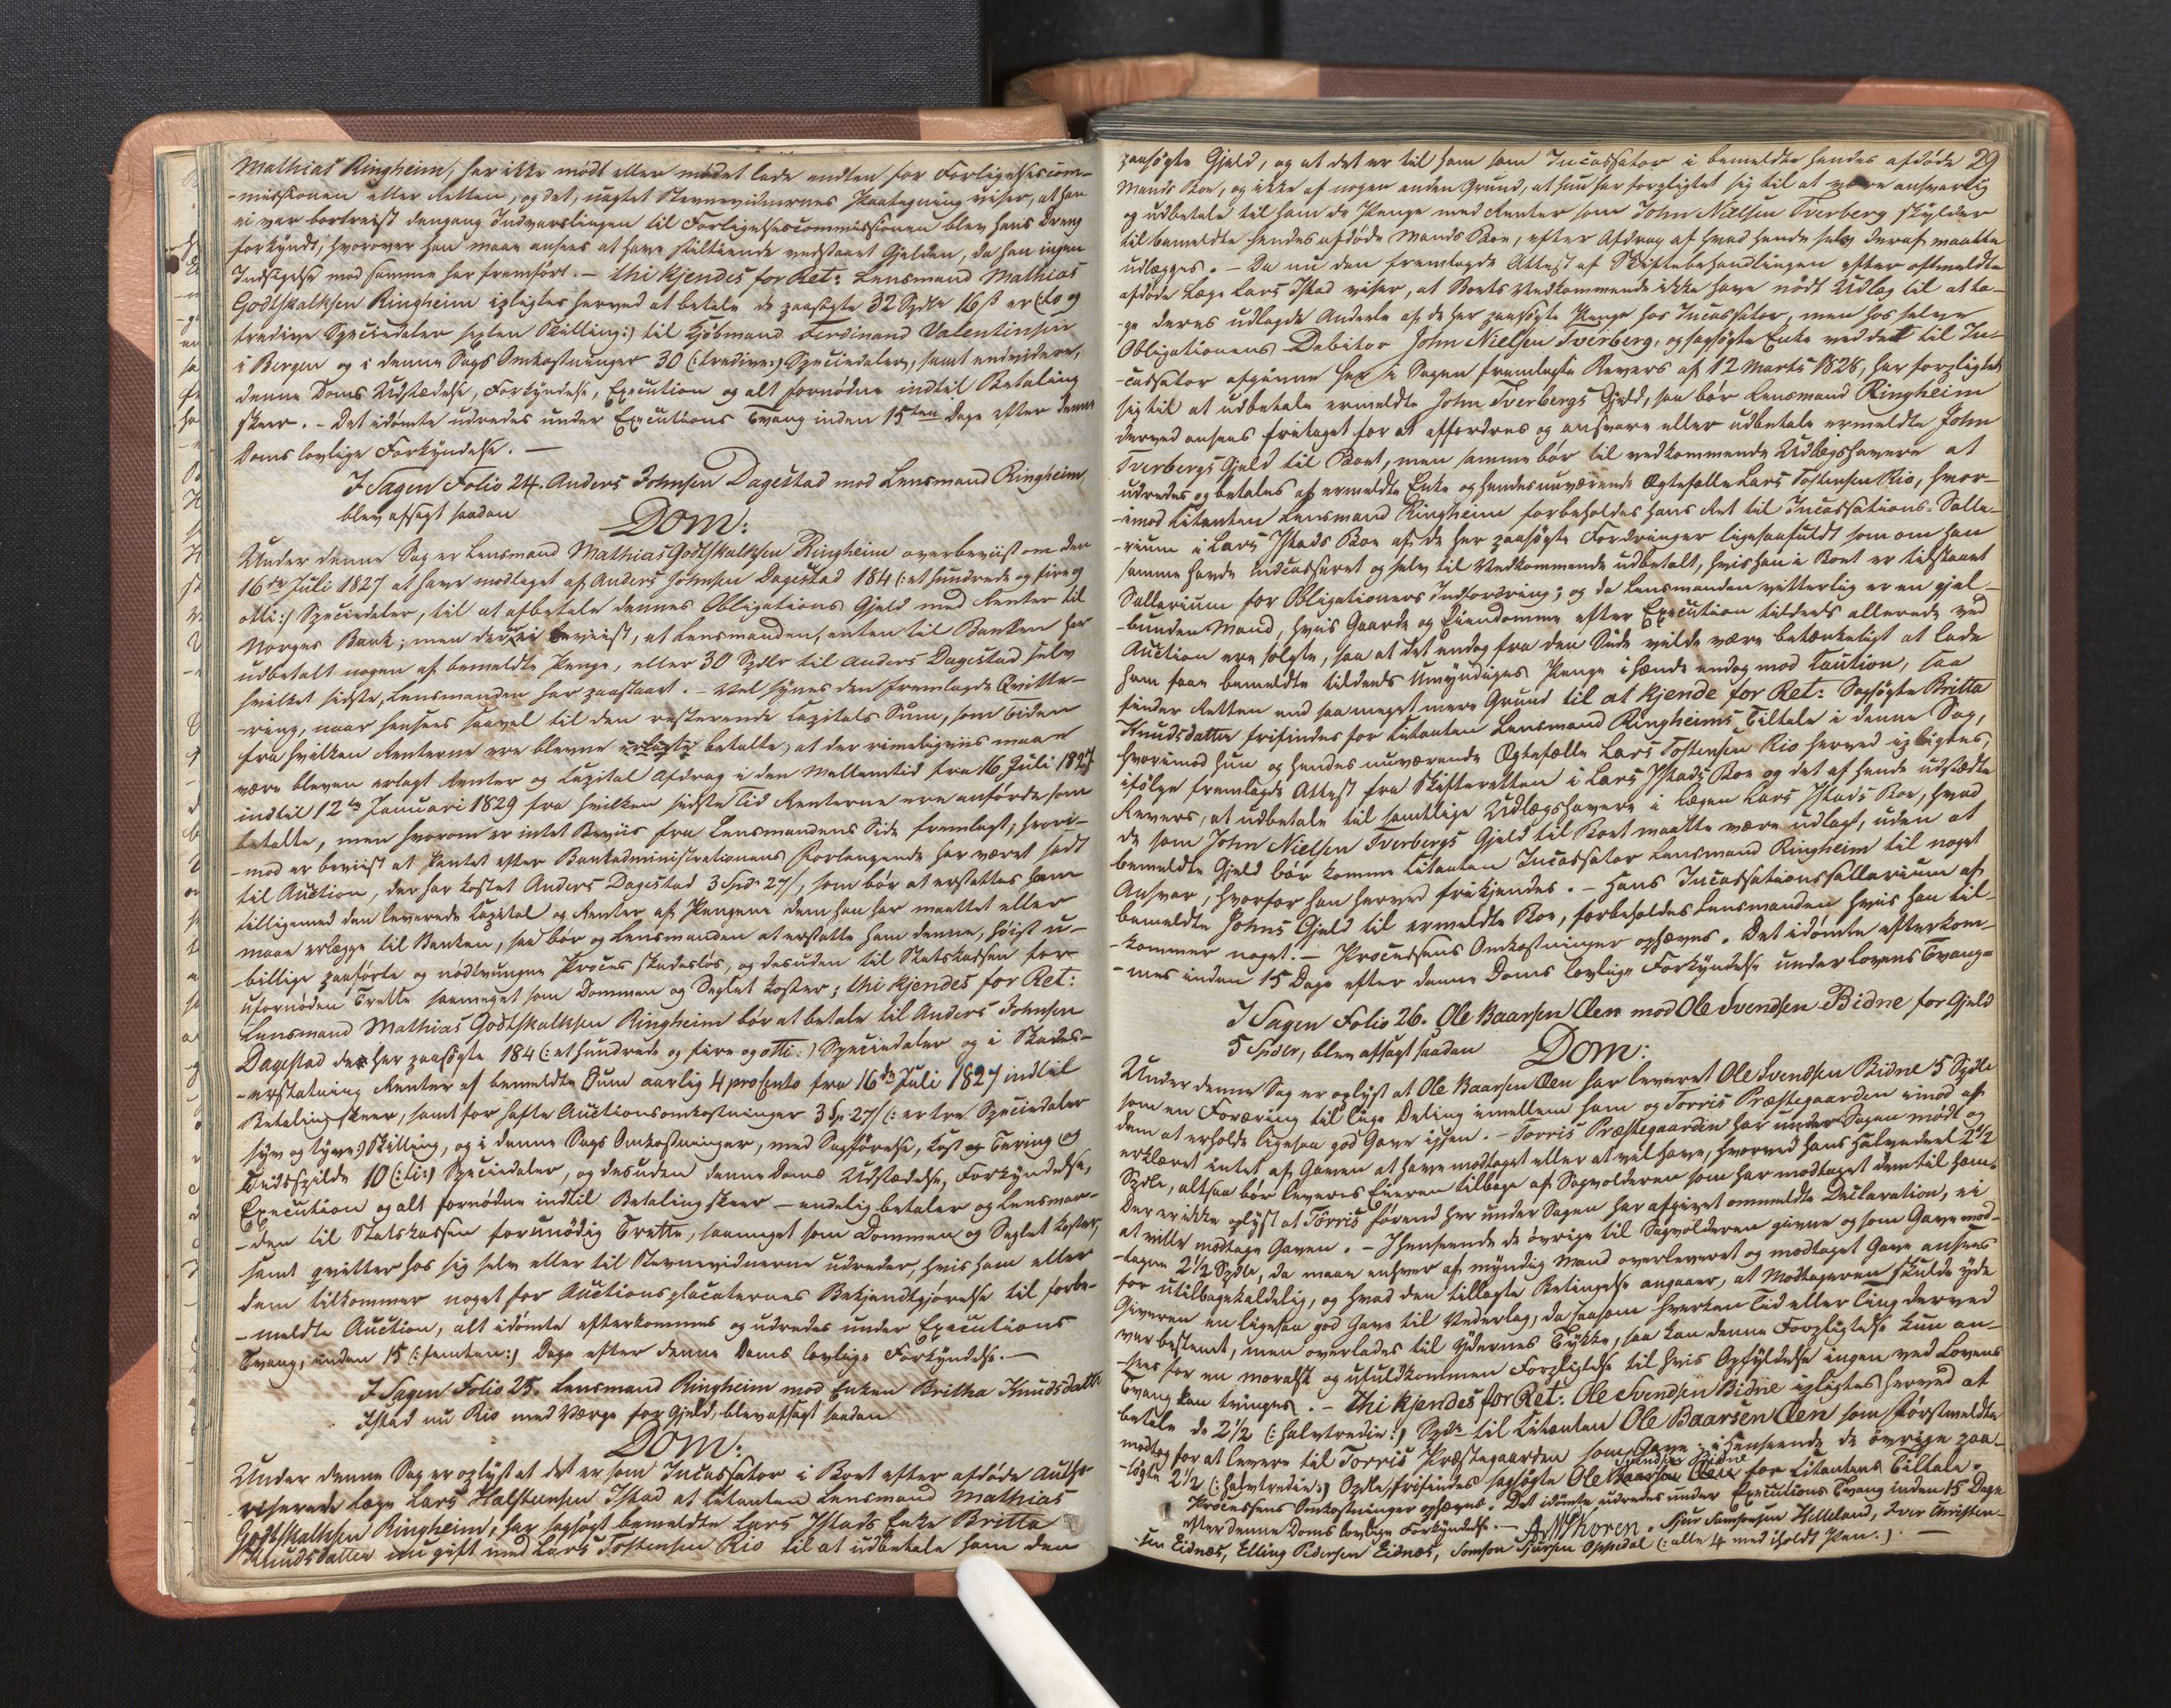 Mathias Ringheim, har ikke mødt eller mødet lade endten for Forligelsescom-
-missionen eller Retten, og det, uagtet Stevnevidnernes Paategning viser, at han
ei var bortreist dengang Indvarslingen til Forligelsescommissionen blev hans Dreng
forkyndt, hvorover han maae ansees at have stiltiende vedstaaet Gjelden, da han ingen
Indsigelse mod samme har fremført. - Thi kjendes for Ret: Lensmand Mathias
Godtskalksen Ringheim ipligtes herved at betale de paasøgte 32 Spdlr 16 ß er (: to og
tredive Speciedaler sexten Skilling:) til Kjøbmand Ferdinand Valentinsen
i Bergen og i denne Sags Omkostninger 30 (: tredive:) Speciedaler, samt endvidere,
denne Doms Udstædelse, Forkyndelse, Execution og alt fornødne indtil Betaling
skeer. - Det idømte udredes under Executions Tvang inden 15ten Dage efter denne
Doms lovlige Forkyndelse. -
I Sagen Folio 24. Anders Johnsen Dagestad mod Lensmand Ringheim
blev afsagt saadan
Dom:
Under denne Sag er Lensmand Mathias Godtskalksen Ringheim overbeviist om den
16de Juli 1827 at have modtaget af Anders Johnsen Dagestad 184 (: et hundrede og fire og
otti:) Speciedaler, til at afbetale dennes Obligations Gjeld med Renter til
Norges Bank; men der er ei beviist, at Lensmanden, enten til Banken har
udbetalt nogen af bemeldte Penge, eller 30 Spdlr til Anders Dagestad selv
hvilket sidste, Lensmanden har paastaaet. - Vel synes den fremlagde Qvitte-
-ring, naar hensees saavel til den resterende Capitals Sum, som tiden
fra hvilken Renterne ere blevne erlagte betalte, at der rimeligviis maae
være bleven erlagt Renter og Capital Afdrag i den Mellemtid fra 16 Juli 1827
indtil 12te Januari 1829 fra hvilken sidste Tid Renterne ere anførde som
betalte, men hvorom er intet Beviis fra Lensmandens Side fremlagt; hvori-
-mod er beviist at Pantet efter Bankadministrationens Forlangende har været sadt
til Auction, der har kostet Anders Dagestad 3 Spd 27 ß, som bør at erstattes ham
tilligemed den leverede Capital og Renter af Pengene dem han har maattet eller
maae erlægge til Banken, saa bør og Lensmanden at erstatte ham denne, høist u-
-billige paaførte og nødtvungne Proces skadesløs, og desuden til Statskassen for
ufornøden Trette saameget som Dommen og Seglet koster; Thi kjendes for Ret:
Lensmand Mathias Godtskalksen Ringheim bør at betale til Anders Johnsen
Dagestad de her paasøgte 184 (: et hundrede og fire og otti:) Speciedaler og i Skades-
-erstatning Renter af bemeldte Sum aarlig 4 pro Cento fra 16de Juli 1827 indtil
Betaling skeer, samt for hafte Auctionsomkostninger 3 Sp: 27 ß (: er tre Speciedaler
syv og tyve:) Skilling, og i denne Sags Omkostninger, med Sagførelse, Kost og Tæring og
Tidsspilde 10 (: ti:) Speciedaler, og desuden denne Doms Udstædelse, Forkyndelse,
Execution og alt fornødne indtil Betaling skeer - endelig betaler og Lensman-
-den til Statskassen for unødig Trette, saameget som Dommen og Seglet koster,
samt qvitter hos sig selv eller til Stevnevidnerne udreder, hvis ham eller
dem tilkommer noget for Auctionsplacaternes Bekjendtgjørelse til forbe-
-meldte Auction, alt idømte efterkommes og udredes under Executions
Tvang, inden 15 (: femten:) Dage efter denne Doms lovlige Forkyndelse. -
I Sagen Folio 25. Lensmand Ringheim mod Enken Britha Knudsdatter
Istad nu Rio med Værge for Gjeld, blev afsagt saadan
Dom:
Under denne Sag er oplyst at det er som Incassator i Boet efter afdøde Autho-
riserede Læge Lars Halstensen Istad at Citanten Lensmand Mathias
Godtskalksen Ringheim, har sagsøgt bemeldte Lars Istads Enke Britta
Knudsdatter nu gift med Lars Tostensen Rio til at udbetale ham den
29
paasøgte Gjeld, og at det er til ham som Incassator i bemeldte hendes afdøde
Mands Boe, og ikke af nogen anden Grund, at hun har forpligtet sig til at være ansvarlig
og udbetale til ham de Penge med Renter som John Nielsen Tverberg skylder
til bemeldte hendes afdøde Mands Boe, efter Afdrag af hvad hende selv deraf maatte
udlægges. - Da nu den fremlagde Attest af Skiftebehandlingen efter oftmeldte
afdøde Læge Lars Istad viser, at Boets Vedkommende ikke have nødt Udlæg til at ta-
-ge deres udlagde Andeele af de her paasøgte Penge hos Incassator, men hos selve
Obligationens Debitor John Nielsen Tverberg, og sagsøgte Enke ved det til In-
-cassator afgivne her i Sagen fremlagte Revers af 12 Marts 1828, har forpligtet
sig til at udbetale ermeldte John Tverbergs Gjeld, saa bør Lensmand Ringheim
derved ansees fritaget for at affordres og ansvare eller udbetale ermeldte John
Tverbergs Gjeld til Boet, men samme bør til vedkommende Udlægshavere at
udredes og betales af ermeldte Enke og hendes nuværende Ægtefælle Lars Tostensen Rio, hvor-
-imod Citanten Lensmand Ringheim forbeholdes hans Ret til Incassations-Salla-
-rium i Lars Istads Boe af de her paasøgte Fordringer ligesaafuldt som om han
samme havde indcasseret og selv til Vedkommende udbetalt, hvis han i Boet er tilstaaet
Sallarium for Obligationers Indfordring; og da Lensmanden vitterlig er en gjel-
-bunden Mand, hvis Gaarde og Eiendomme efter Execution tildeels allerede ved
Auction ere solgte, saa at det endog fra den Side vilde være betænkeligt at lade
ham faae bemeldte tildeels Umyndiges Penge i Hænde endog mod Caution, saa
finder Retten end saa meget mere Grund til at kjende for Ret: Sagsøgte Britta
Knudsdatter frifindes for Citanten Lensmand Ringheims Tiltale i denne Sag,
hvorimod hun og hendes nuværende Ægtefælle Lars Tostensen Rio herved ipligtes,
ifølge fremlagde Attest fra Skifteretten i Lars Istads Boe og det af hende udstædte
Revers, at udbetale til samtlige Udlægshavere i Lægen Lars Istads Boe, hvad
de som John Nielsen Tverbergs Gjeld til Boet maatte være udlagt, uden at
bemeldte Gjeld bør komme Citanten Incassator Lensmand Ringheim til noget
Ansvar, hvorfor han herved frikjendes. - Hans Incassationssallarium af
bemeldte Johns Gjeld til ermeldte Boe, forbeholdes Lensmanden hvis han til-
-kommer noget. - Processens Omkostninger ophæves. Det idømte efterkom-
-mes inden 15 Dage efter denne Doms lovlige Forkyndelse under Lovens Tvang.
I Sagen Folio 26. Ole Baarsen Øen mod Ole Svendsen Bidne for Gjeld
5 Spdlr, blev afsagt saadan Dom:
Under denne Sag er oplyst at Ole Baarsen Øen har leveret Ole Svendsen Bidne 5 Spdlr
som en Foræring til lige Deling imellem ham og Torris Præstegaarden imod af
dem at erholde ligesaa god Gave igjen. - Torris Præstegaarden har under Sagen mødt og
erklæret intet af Gaven at have modtaget eller at vil have, hvorved hans halvedeel 2 1/2
Spdlr, altsaa bør leveres Eieren tilbage af Sagvolderen som har modtaget dem til ham.
Der er ikke oplyst at Torris førend her under Sagen har afgivet ommeldte Declaration, ei
at ville modtage Gaven. - I henseende de øvrige til Sagvolderen givne og som Gave mod-
-tagne 2 1/2 Spdlr, da maae enhver af myndig Mand overleveret og modtaget Gave ansees
for utilbagekaldelig, og hvad den tillagte Betingelse angaaer, at Modtageren skulde yde
Giveren en ligesaa god Gave til Vederlag, da saasom hverken Tid eller Ting derved
var bestemt, men overlades til Yderens Tykke, saa kan denne Forpligtelse kun an-
-sees for en moralsk og ufuldkommen Forpligtelse til hvis Opfyldelse ingen ved Lovens
Tvang kan tvinges. - Thi kjendes for Ret: Ole Svendsen Bidne ipligtes herved at
betale de 2 1/2 (: halvtredie:) Spdlr til Citanten Ole Baarsen Øen som Førstmeldte
modtog for at levere til Torris Præstegaarden som Gave; i Henseende de øvrige paa-
-søgte 2 1/2 (: halvtredie:) Spdlr, frifindes sagsøgte Ole Svendsen Bidne Baarsen Øen for Citantens Tiltale.
Processens Omkostninger ophæves. Det idømte udredes under Executions Tvang inden 15 Dage
efter denne Doms lovlige Forkyndelse. - Sjur Samsonsen Helleland, Iver Christen-
-sen Eidnæs, Elling Pedersen Eidnæs, Samson Sjursen Oppedal (: alle 4 med iholdt Pen:). -